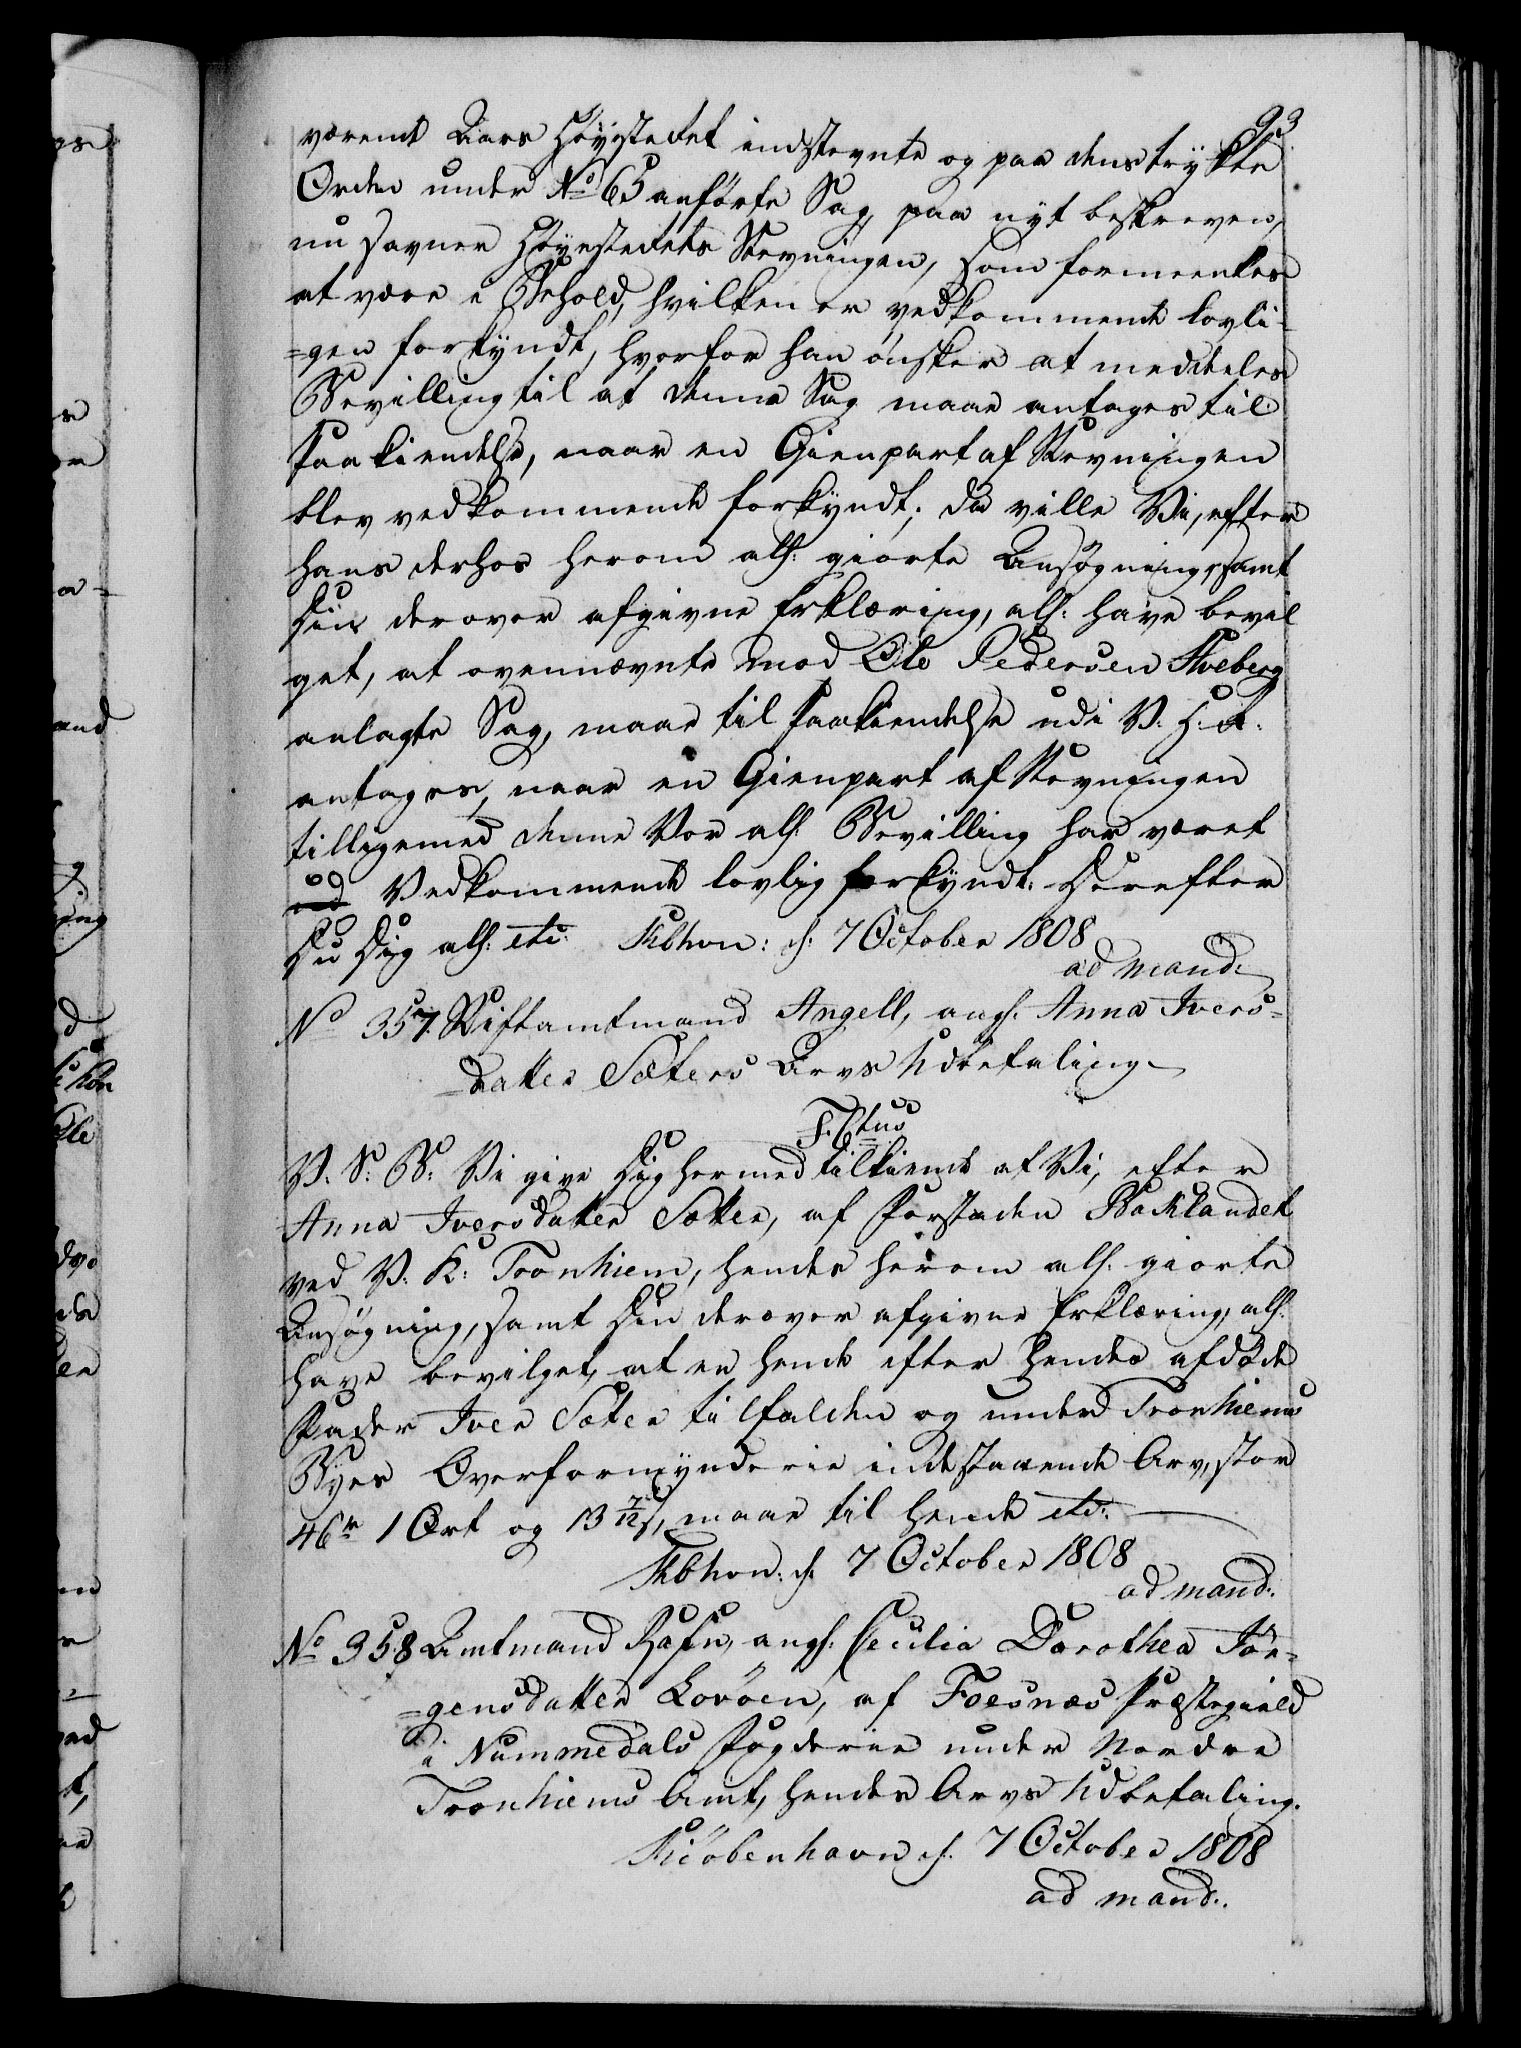 93
værende Aars Høyesteret indstevnte og paa den trykte
Orden under No 65 anførte Sag, paa nyt beskreven,
nu savner Høyesterets Stevningen, som formeentes
at være i Behold, hvilken er vedkommende lovli-
=gen forkyndt, hvorfor han ønsker at meddeles
Bevilling til at denne Sag maae antages til
Paakiendelse, naar en Gienpart af Stevningen
blev vedkommende forkyndt; da ville Vi, efter
hans derhos herom all: giorte Ansøgning, samt
Din derover afgivne Erklæring, all: have bevil
get, at ovennævnte mod Ole Pedersen Kveberg
anlagte Sag, maae til Paakiendelse udi V. H. R.
antages, naar en Gienpart af Stevningen
tilligemed denne Vor all: Bevilling har været
Vedkommende lovlig forkyndt: Derefter
Du Dig all: etc: Kbhvn: d: 7 October 1808
ad mand:
No 357 Stiftamtmand Angell, ang: Anna Ivers=
=datter Sæters Arvs Udbetaling
F. 6tus
V. S. B: Vi give Dig hermed tilkiende at Vi, efter
Anna Iversdatter Sætter, af Forstaden Baklandet
ved V. K: Tronhiem, hendes herom all: giorte
Ansøgning, samt Din derover afgivne Erklæring, all:
have bevilget, at en hende efter hendes afdøde
Fader Iver Sæter tilfalden og under Tronhiems
Byes Overformynderie indestaaende Arv, stor
46 rd 1 Ort og 13 7/12 s, maae til hende etc:
Kbhvn: d: 7 October 1808
ad mand:
No 358 Amtmand Hafn, ang: Cecilia Dorothea Jør=
=gensdatter Lovøen, af Foesnæs Præstegield
i Nummedals Fogderie under Nordre
Tronhiems Amt, hendes Arvs Udbetaling.
Kiøbenhavn d: 7 October 1808
ad mand: